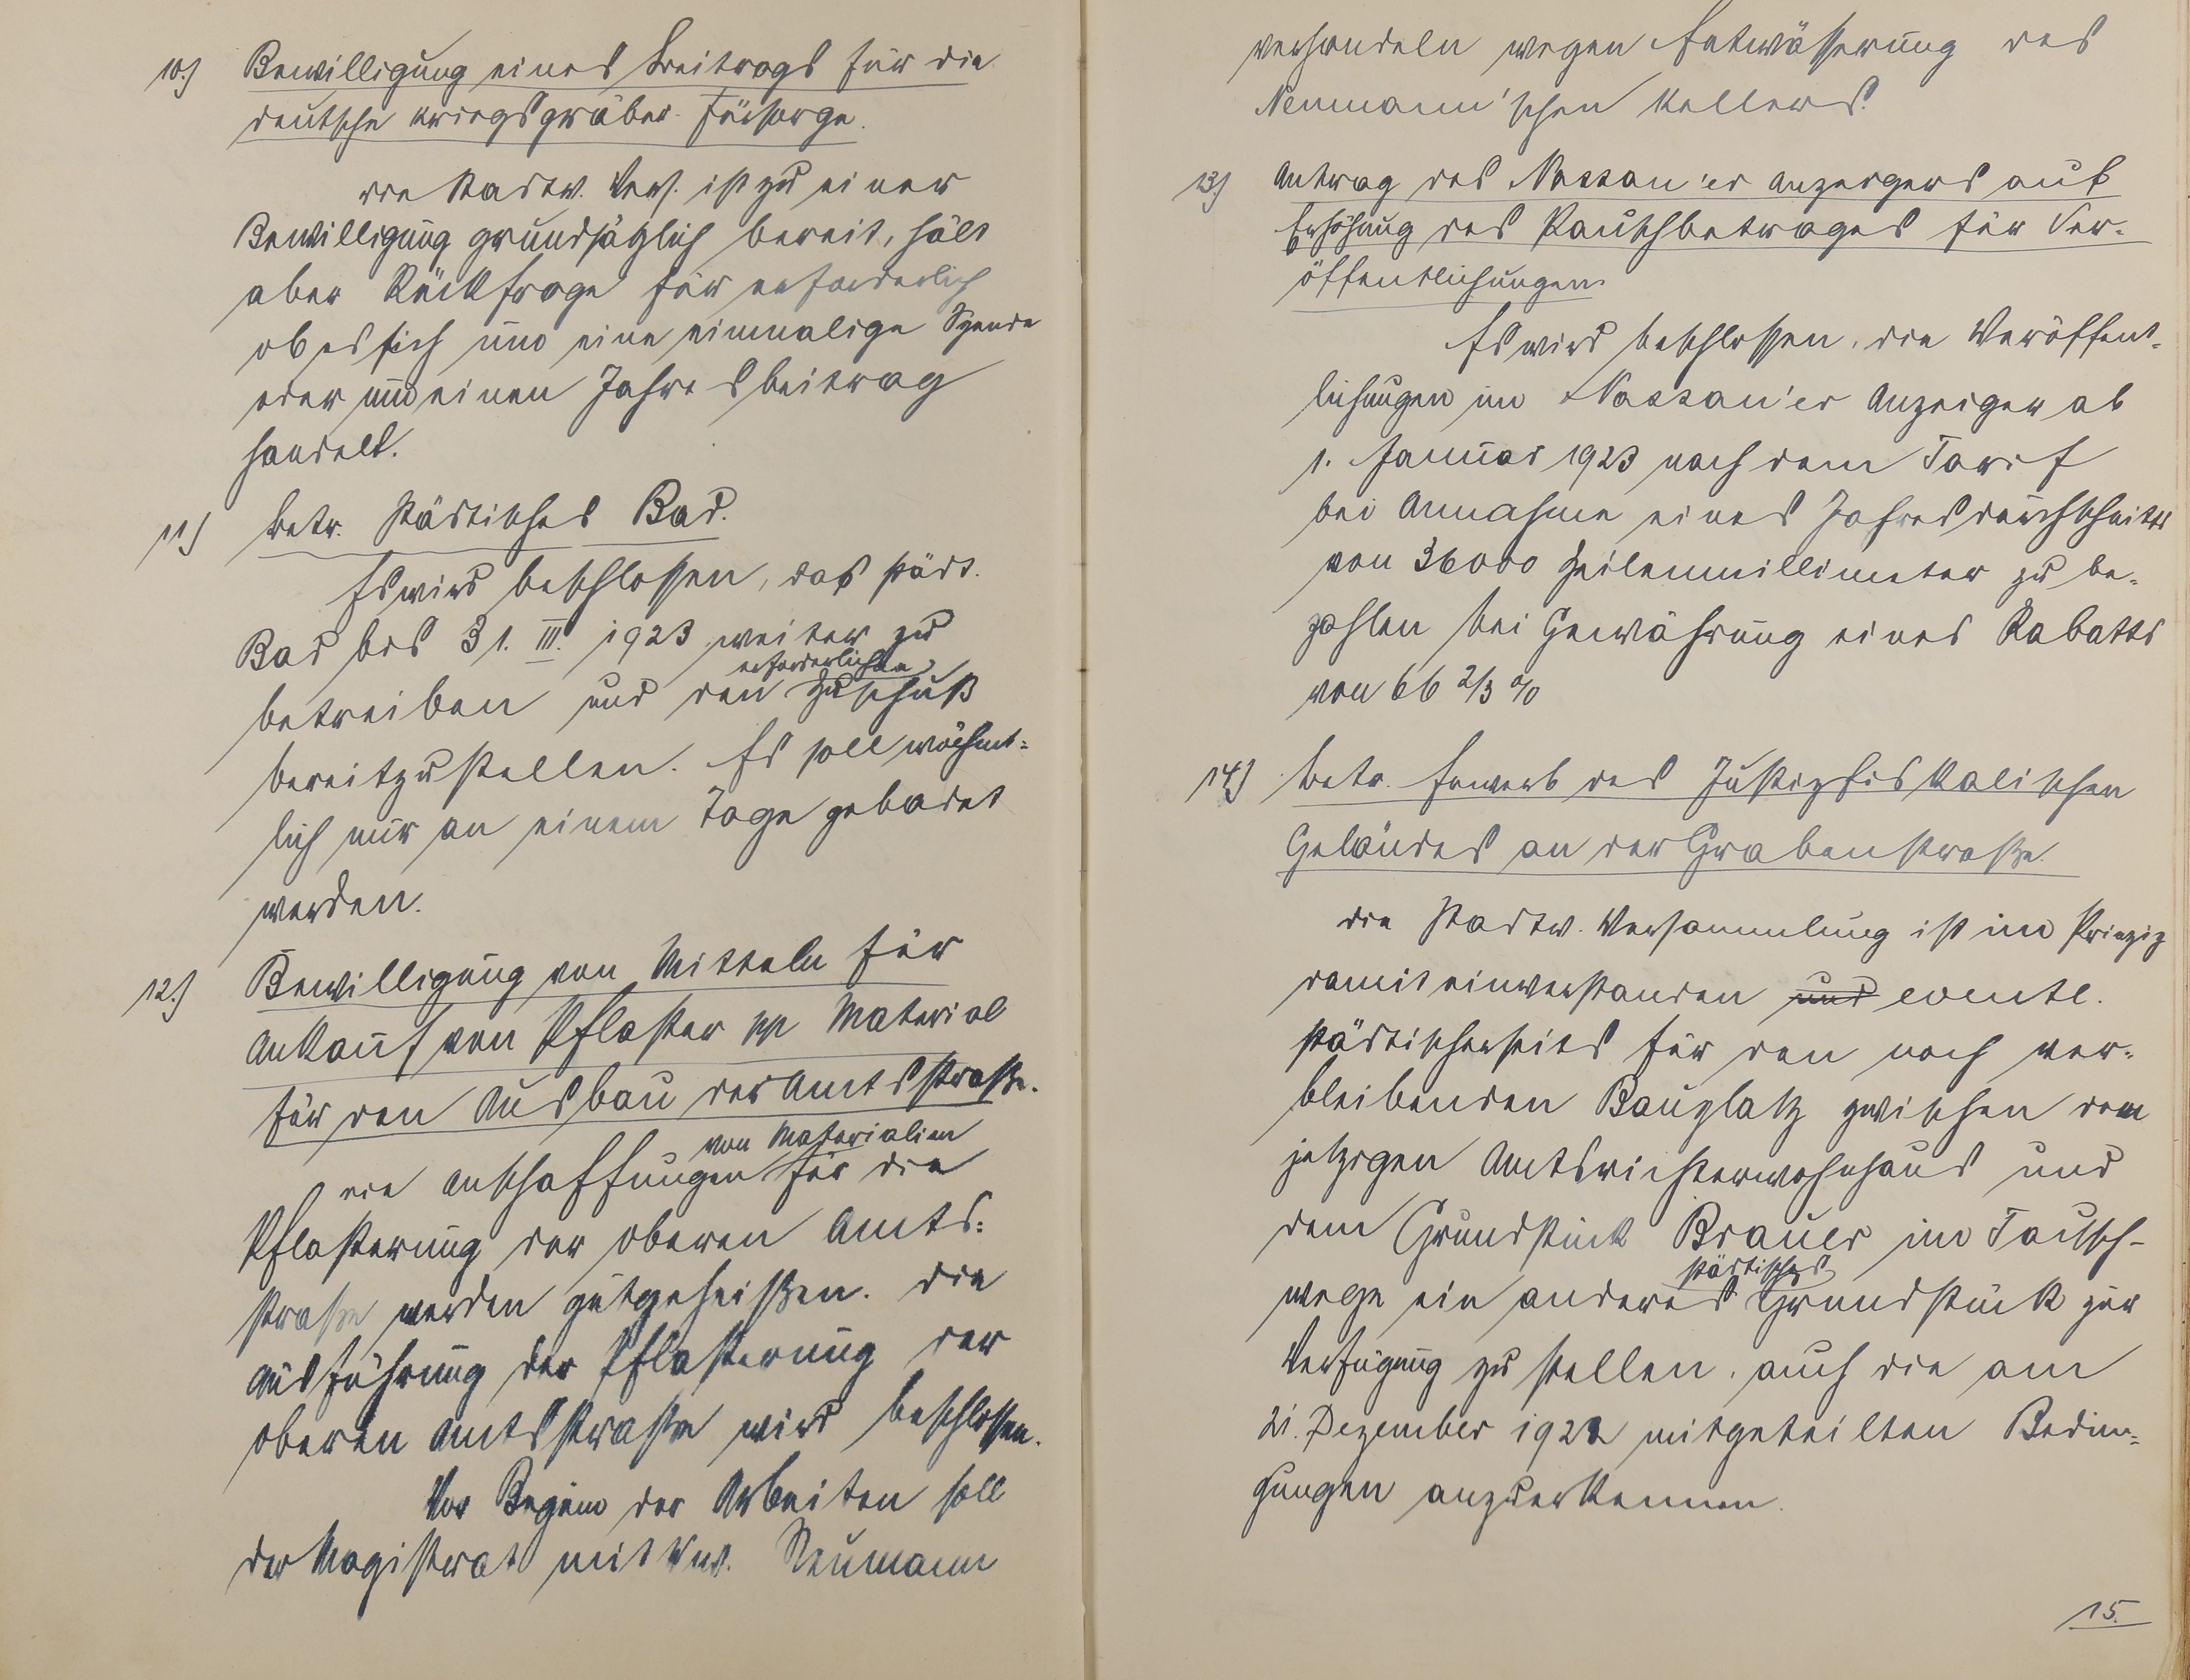 10.) Bewilligung eines Beitrags für die
deutsche Kriegsgräber-Fürsorge.
Die Stadtv. Vers. ist zu einer
Bewilligung grundsätzlich bereit, hält
aber Rückfrage für erforderlich
ob es sich um eine einmalige Spende
oder um einen Jahresbeitrag
handelt.
11.) Betr. Städtisches Bad.
Es wird beschlossen, das städt.
Bad bis 31. III. 1923 weiter zu
erforderlichen
betreiben und den Zuschuß
bereitzustellen. Es soll wöchent-
lich nur an einem Tage gebadet
werden.
12.) Bewilligung von Mitteln für
Ankauf von Pflaster pp Material
für den Ausbau der Amtsstraße.
von Materialien
Die Anschaffungen für die
Pflasterung der oberen Amts-
straße werden gutgeheißen. Die
Ausführung der Pflasterung der
oberen Amtsstraße wird beschlossen.
Vor Beginn der Arbeiten soll
der Magistrat mit Ww. Neumann
verhandeln wegen Entwässerung des
Neumann'schen Kellers.
13.) Antrag des Nassau'er Anzeigers auf
Erhöhung des Pauschbetrages für Ver-
öffentlichungen.
Es wird beschlossen, die Veröffent-
lichungen im Nassau'er Anzeiger ab
1. Januar 1923 nach dem Tarif
bei Annahme eines Jahresdurchschnitts
von 36000 Zeilenmillimeter zu be-
zahlen bei Gewährung eines Rabatts
von 66 2/3 %
14.) Betr. Erwerb des Justizfiskalischen
Geländes an der Grabenstraße.
Die Stadtv. Versammlung ist im Prinzip
damit einverstanden und eventl.
städtischerseits für den noch ver-
bleibenden Bauplatz zwischen dem
jetzigen Amtsrichterwohnhaus und
dem Grundstück Brauer im Tausch-
städtisches
wege ein anderes Grundstück zur
Verfügung zu stellen, auch die am
21. Dezember 1922 mitgeteilten Bedin-
gungen anzuerkennen.
15.